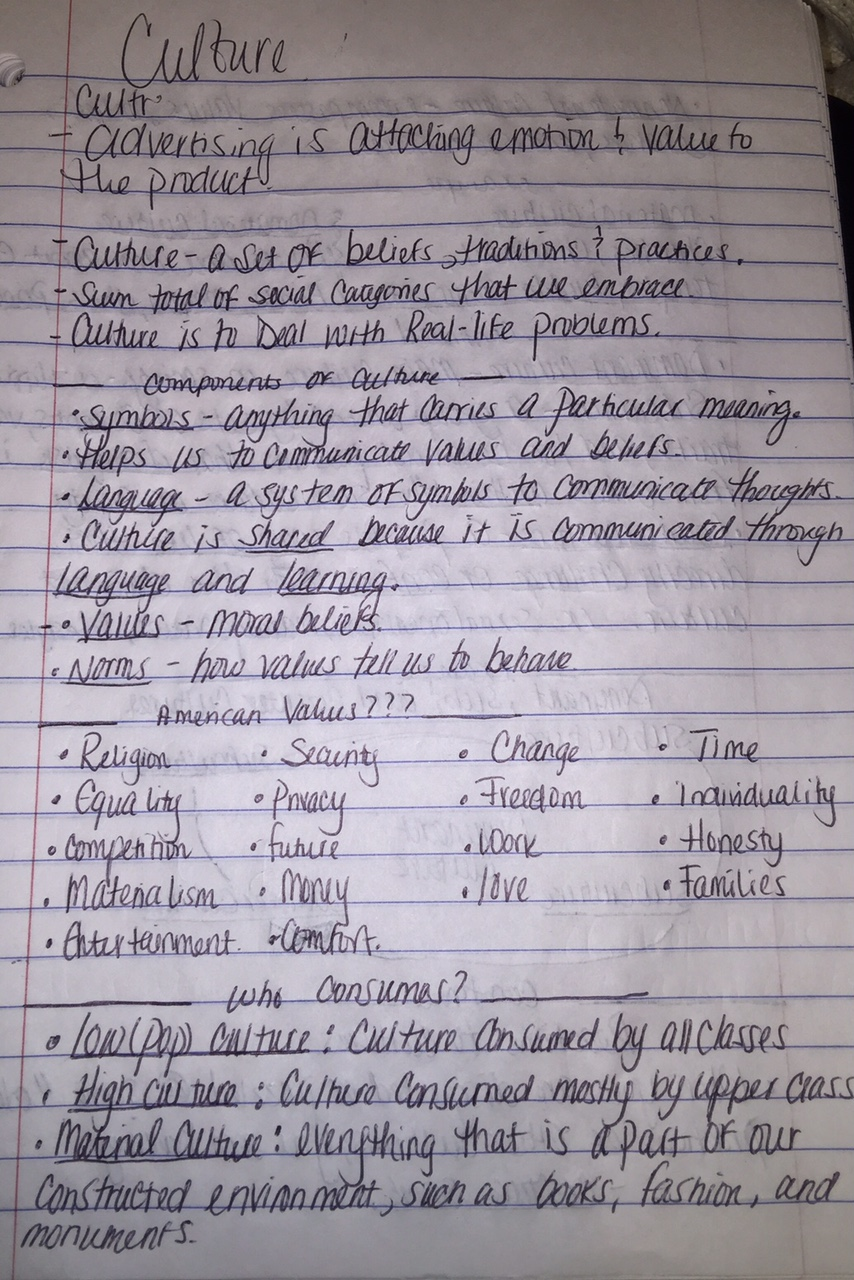 Culture
Cultr
- advertising is attaching emotion & value to
the product.
- Culture - a set of beliefs, traditions & practices.
- Sum total of social Categories that we embrace.
- Culture is to Deal with Real-life problems.
Components of Culture
• Symbols - anything that carries a particular meaning.
• Helps us to communicate values and beliefs.
• Language - a system of symbols to communicate thoughts.
• Culture is shared because it is communicated through
language and learning.
- • Values - moral beliefs.
• Norms - how values tell us to behave
American Values???
• Religion • Security • Change • Time
• Equality • Privacy • Freedom • Individuality
• Competition • future • Work • Honesty
• Materialism • Money • love • Families
• Entertainment. • Comfort.
Who Consumes?
• Low(pop) Culture: Culture Consumed by all Classes
• High Culture: Culture Consumed mostly by upper class
• Material Culture: everything that is a part of our
constructed environment, such as books, fashion, and
monuments.